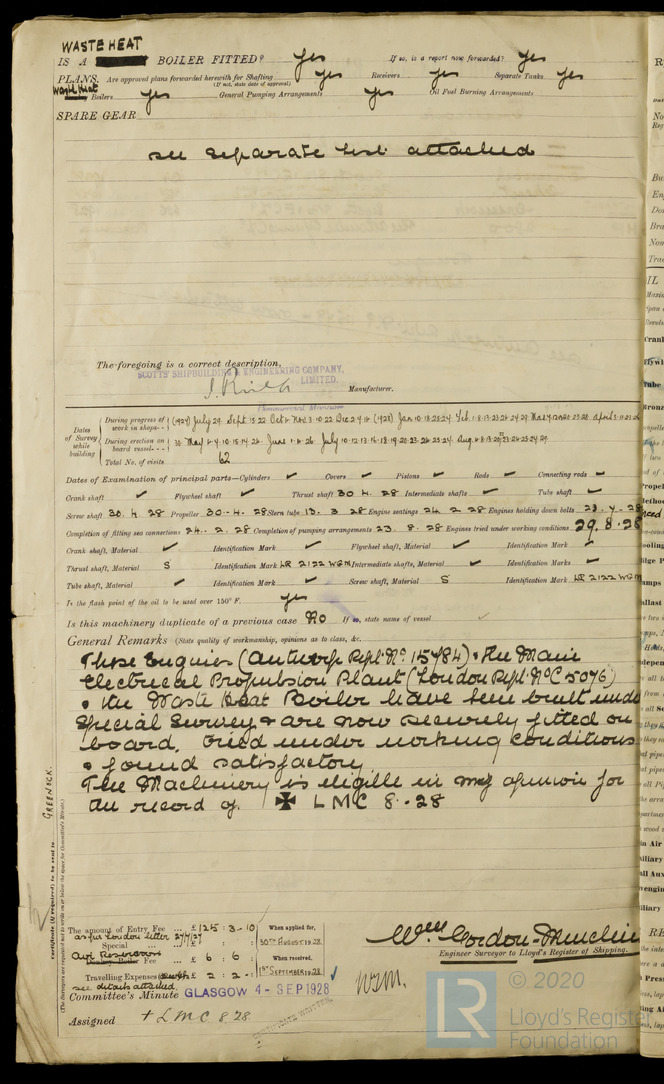 WASTE HEAT
IS A BOILER FITTED? Yes If so, is a report now forwarded? Yes
PLANS. Are approved plans forwarded herewith for Shafting Yes Receivers Yes Separate Tanks Yes
(If not, state date of approval)
Waste Heat Boilers Yes General Pumping Arrangements Yes Oil Fuel Burning Arrangements
SPARE GEAR
see separate list attached
The foregoing is a correct description,
SCOTTS' SHIPBUILDING & ENGINEERING COMPANY,
LIMITED.
Manufacturer.
Dates of Survey while building
During progress of work in shops - - (1927) July 29. Sept 15.22 Oct Nov 3.10.22 Dec (1928) Jan 10.18.25.24 Feb. 1.8.13.23.26.24.29
During erection on board vessel - - - 30. May 4.10.15.14.26. June 1.6.26. July 10.12.13.16.18.19.20.23.26.25.31. Aug
Total No. of visits 62
Dates of Examination of principal parts—Cylinders ✓ Covers ✓ Pistons ✓ Rods ✓ Connecting rods ✓
Crank shaft ✓ Flywheel shaft ✓ Thrust shaft 30.4.28 Intermediate shafts ✓ Tube shaft ✓
Screw shaft 30.4.28 Propeller 30.4.28 Stern tube 13.3.28 Engine seatings 24.2.28 Engines holding down bolts 23.7.28
Completion of fitting sea connections 24.2.28 Completion of pumping arrangements 23.8.28 Engines tried under working conditions 29.8.28
Crank shaft, Material ✓ Identification Mark ✓ Flywheel shaft, Material ✓ Identification Mark ✓
Thrust shaft, Material S Identification Mark LR 2122 WGM Intermediate shafts, Material ✓ Identification Marks ✓
Tube shaft, Material ✓ Identification Mark ✓ Screw shaft, Material S Identification Mark LR 2122 WGM
Is the flash point of the oil to be used over 150° F. Yes
Is this machinery duplicate of a previous case No If so, state name of vessel
General Remarks (State quality of workmanship, opinions as to class, &c.
These Engines (Antwerp Rpt. No. 15484) & the Main
Electrical Propulsion Plant (London Rpt. No C 5076)
& the Waste Heat Boiler have been built under
Special Survey & are now securely fitted on
board, tried under working conditions
& found satisfactory
The Machinery is eligible in my opinion for
the record of ✠ LMC 8.28
GREENOCK.
Certificate (if required) to be sent to
(The Surveyors are requested not to write on or below the space for Committee's Minute.)
The amount of Entry Fee ... £ 125 : 3 - 10 When applied for,
as per London letter 27/7/27
Special ... £ : : 30TH AUGUST 1928
Air Receivers
Donkey Boiler Fee ... £ 6 : 6 When received,
Travelling Expenses £ 2 : 2 1ST SEPTEMBER 1928
see details attached
Wm Gordon-
Engineer Surveyor to Lloyd's Register of Shipping.
WGM.
Committee's Minute GLASGOW 4 - SEP 1928
Assigned + LMC 8.28
CERTIFICATE WRITTEN
© 2020
LR
Lloyd's Register
Foundation